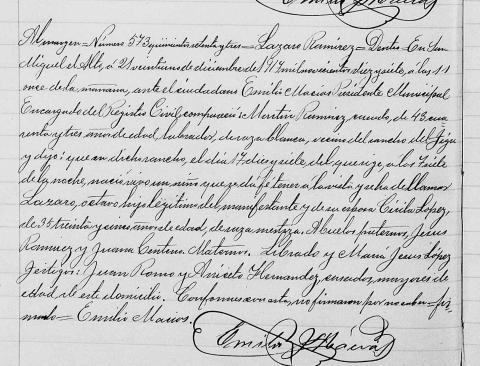 Al margen = Número 573 quinientos setenta y tres = Lazaro Ramirez = Dentro = En San
Miguel el Alto, á 21 veintiuno de diciembre de 1917 mil novecientos diez y siete, á las 11
once de la mañana, ante el ciudadano Emilio Macias Presidente Municipal
Encargado del Registro Civil compareció: Martin Ramirez, casado, de 43 cua
renta y tres años de edad, labrador, de raza blanca, vecino del rancho del
y dijo: que en dicho rancho, el dia 17 diez y siete del que rige, a las 7 siete
de la noche, nació vivo un niño que se da fe tener a la vista y se ha de llamar
Lazaro, octavo, hijo legitimo del manifestante y de su esposa Cirila López,
de 35 treinta y cinco años de edad, de raza mestiza. Abuelos paternos, Jesus
Ramirez y Juana Centeno. Maternos. Librado y Maria Jesus López
Testigos: Juan Romo y Aniceto Hernandez, casados, mayores de
edad, de este domicilio. Conformes con esta, no firmaron por no saber = fir
mado = Emilio Macias.
Emilio Macias